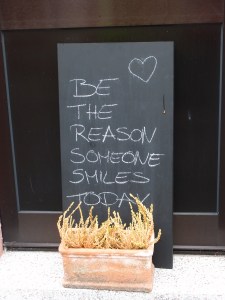 BE
THE
REASON
SOMEONE
SMILES
TODAY